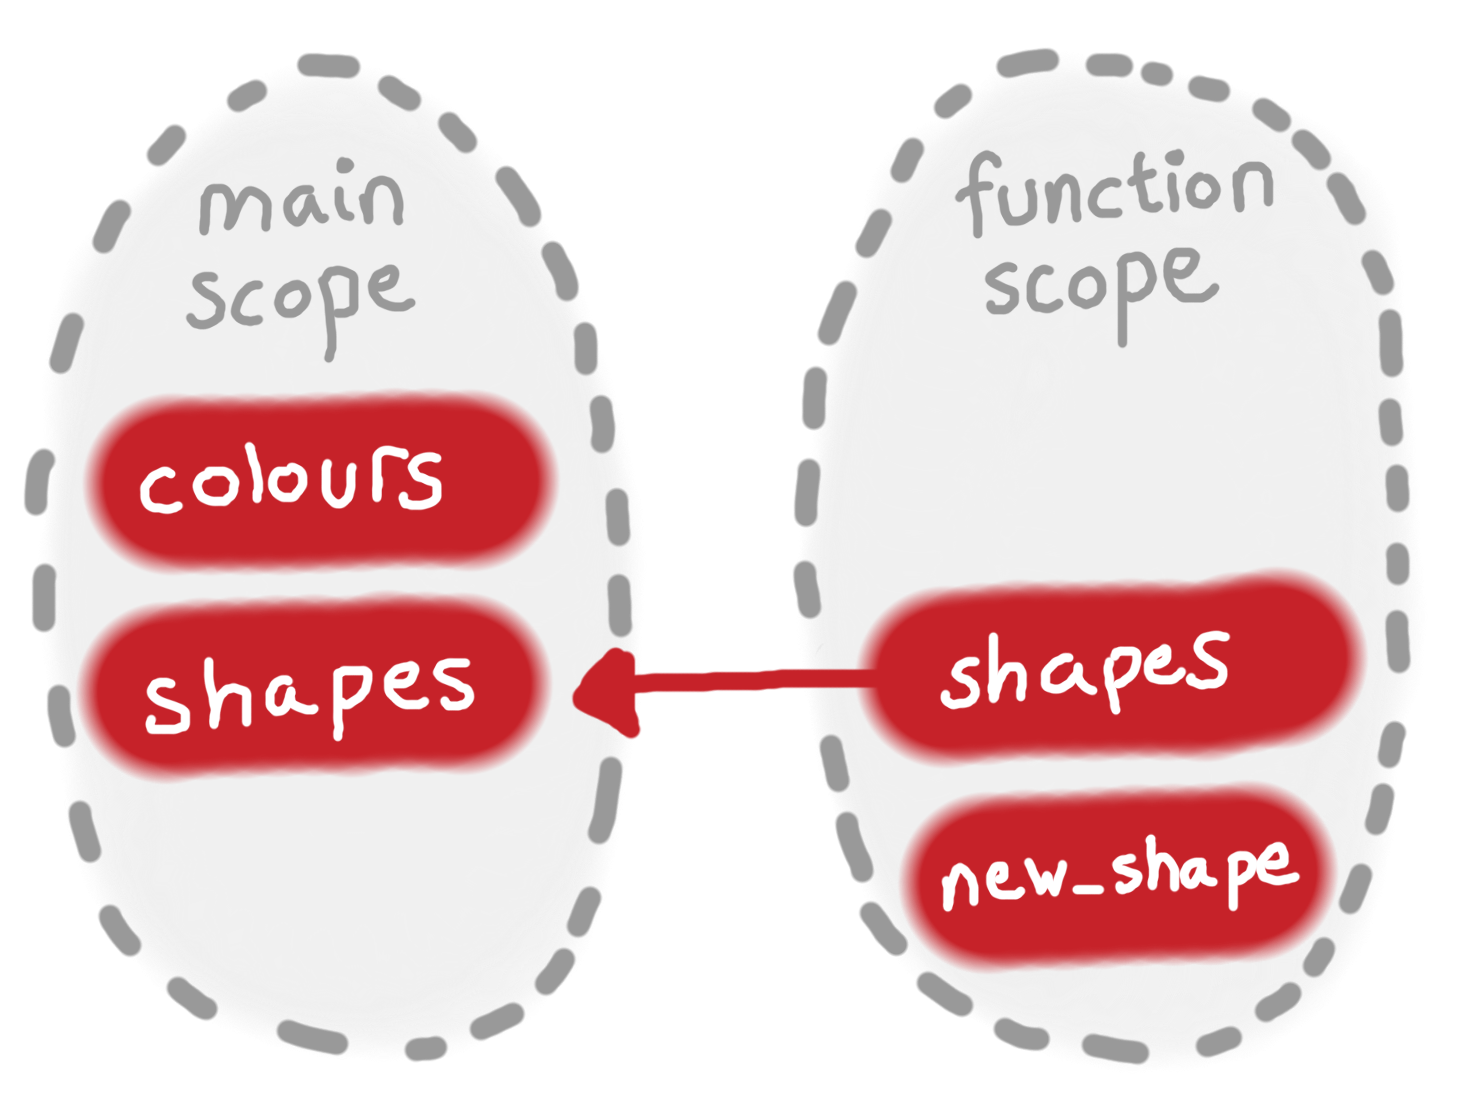 main
scope
colours
shapes
function
scope
shapes
new_shape